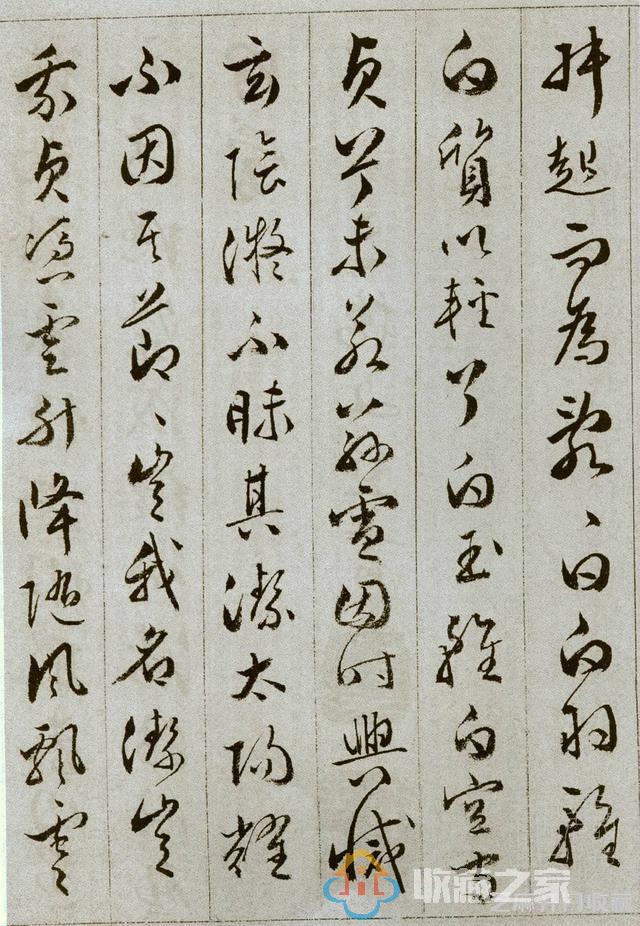 叔起而為亂、曰白羽雖
白質以輕兮白玉雖白空守
貞兮未若茲雪因時興滅
玄陰凝不昧其潔太陽耀
不因其節、豈我名潔豈
我貞憑雲升降隨風飄零
收藏之家